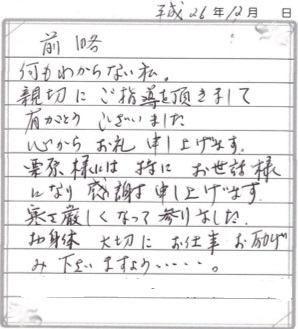 平成26年12月　日
前略
何もわからない私。
親切にご指導を頂きまして
有がとうございました
心からお礼申し上げます。
栗原様には特にお世話様
になり感謝申し上げます
寒さ厳しくなって参りました。
お身体大切にお仕事お励げ
み下さいますよう・・・・・。